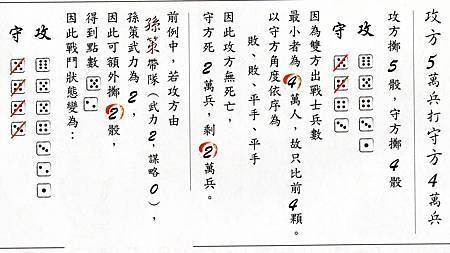 攻方5萬兵打守方4萬兵
攻方擲5骰,守方擲4骰
攻
守
因為雙方出戰士兵數
最小者為4萬人,故只比前4顆。
以守方角度依序為
敗、敗、平手、平手
因此攻方無死亡,
守方死2萬兵,剩2萬兵。
前例中,若攻方由
孫策帶隊(武力2,謀略0),
孫策武力為2,
因此可額外擲2骰,
得到點數
因此戰鬥狀態變為:
攻
守